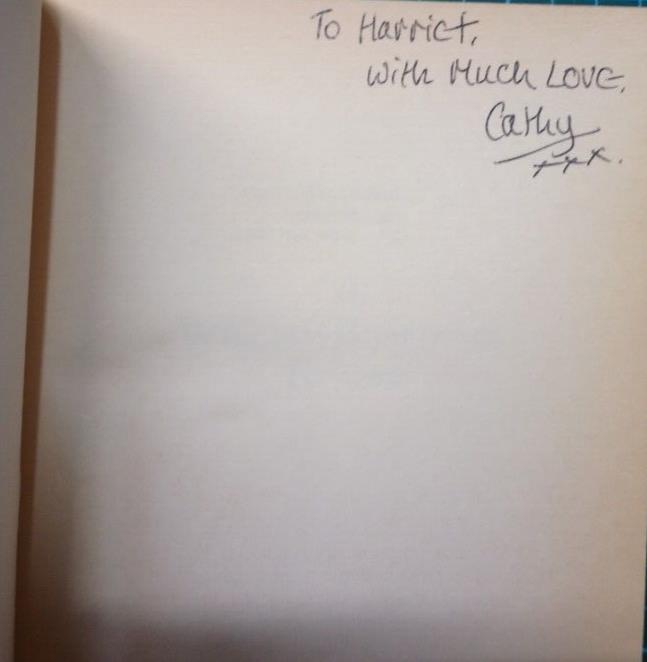 To Harriet,
With Much LOVE.
Cathy
xxx.